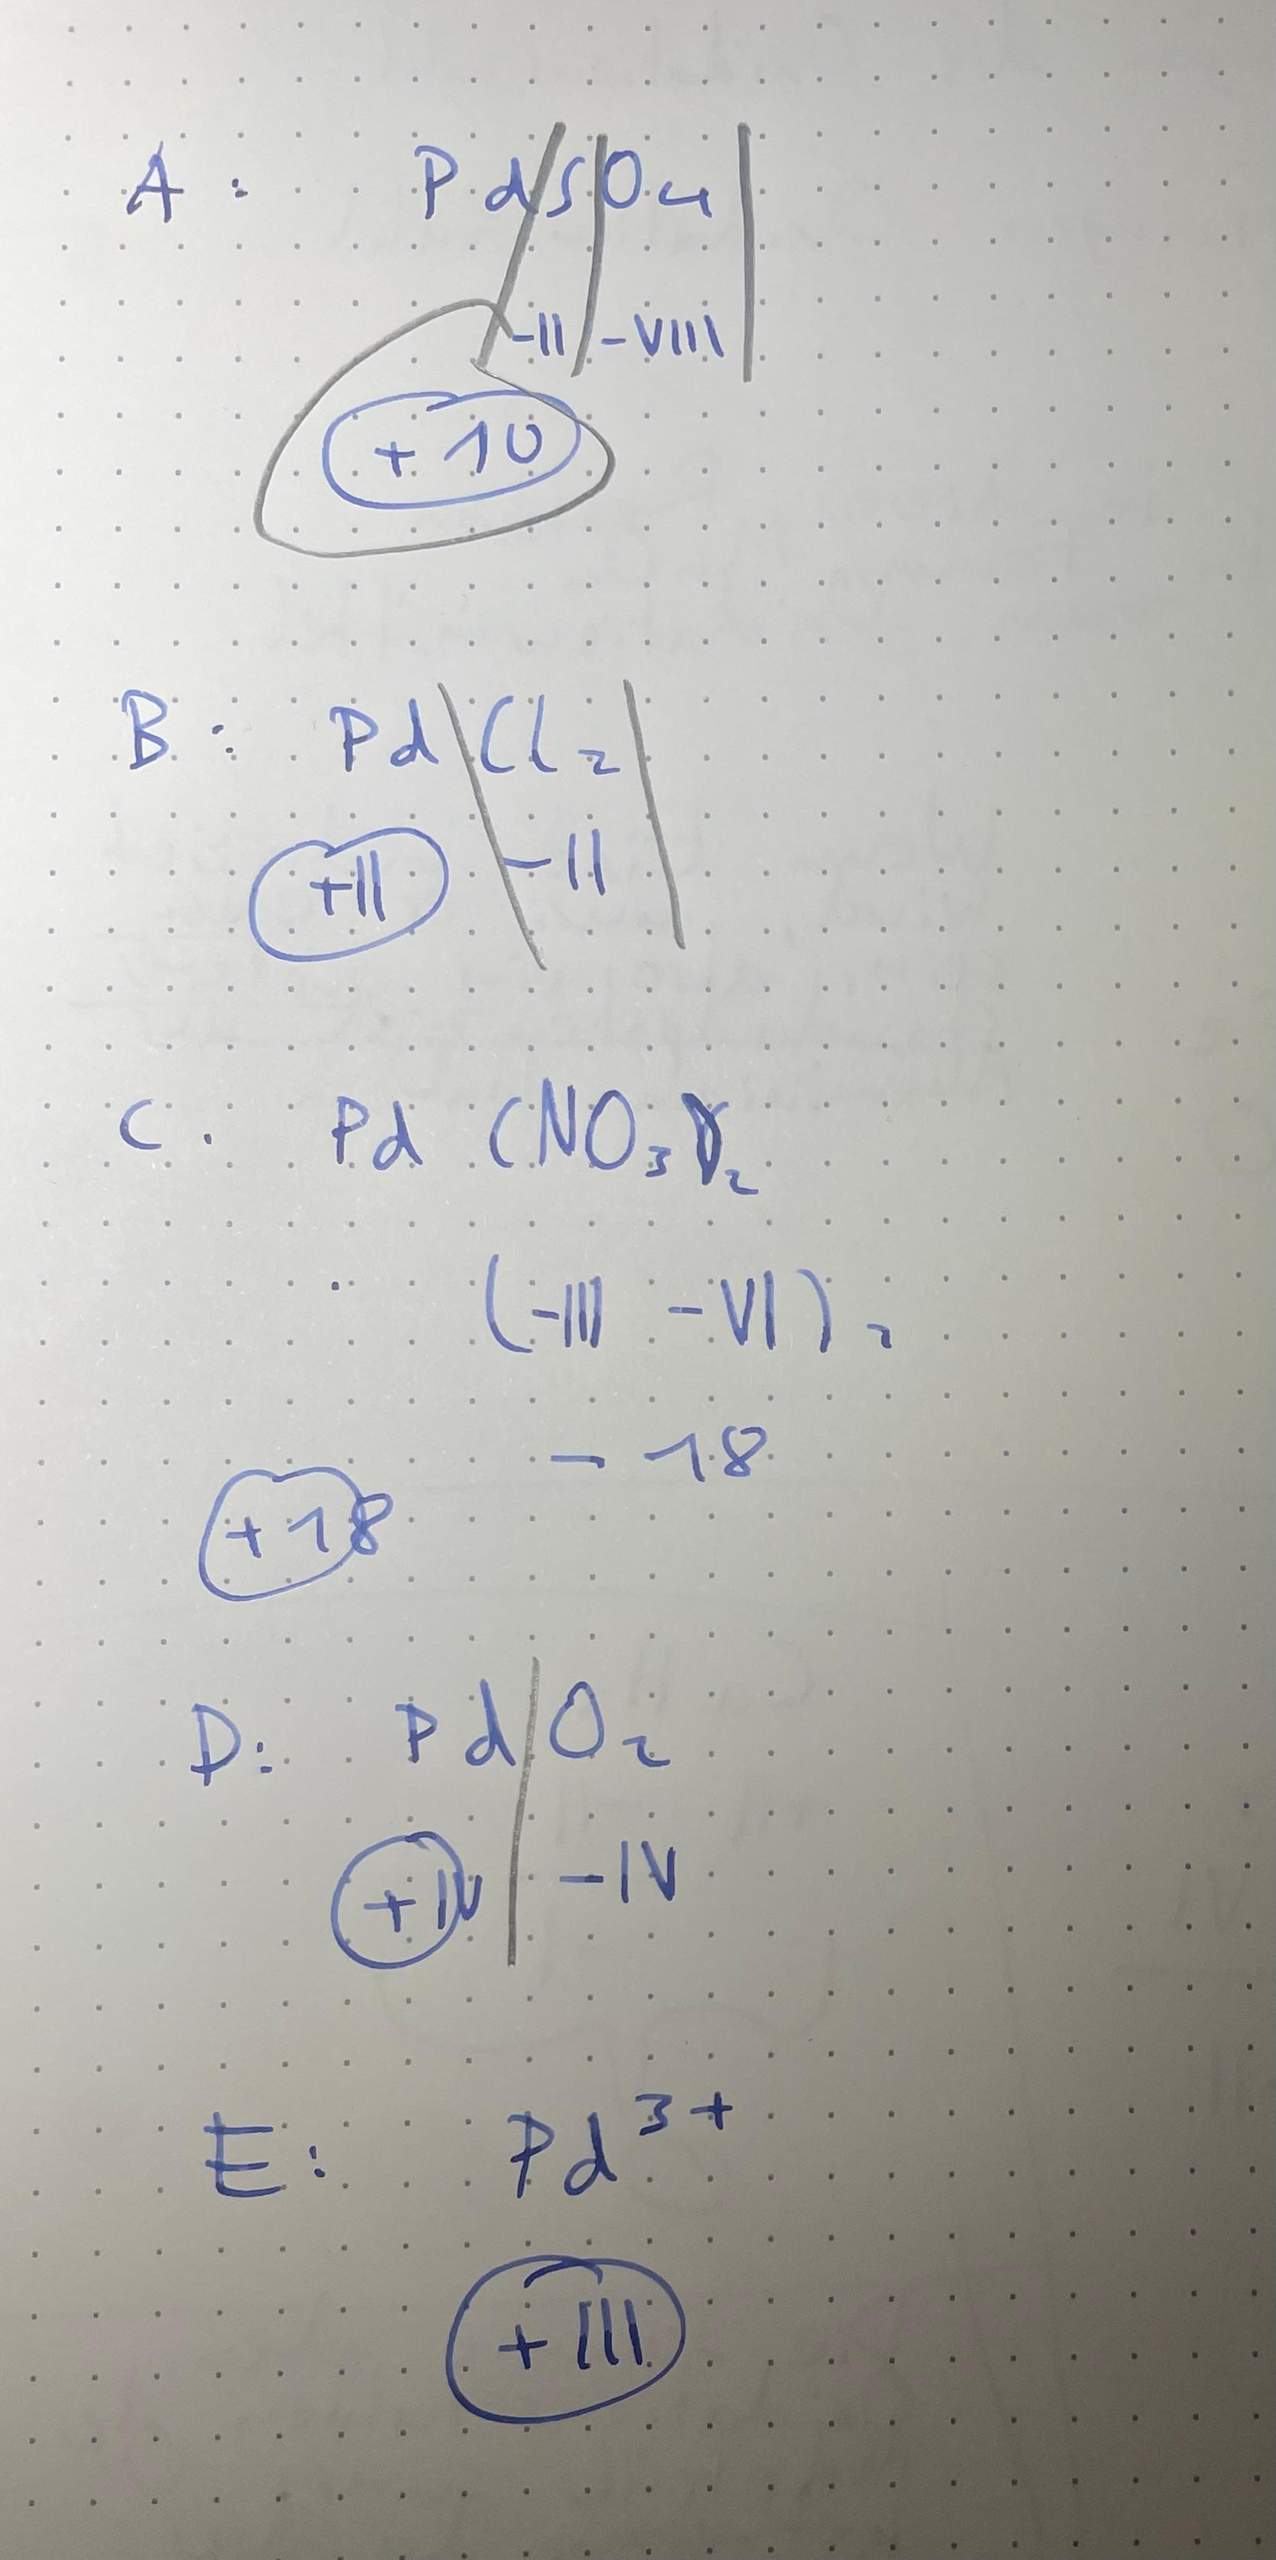 A: PdSO₄
-II -VIII
+10
B: PdCl₂
+II -II
C. Pd (NO₃)₂
(-III -VI)₂
-18
+18
D: PdO₂
+IV -IV
E: Pd³⁺
+III